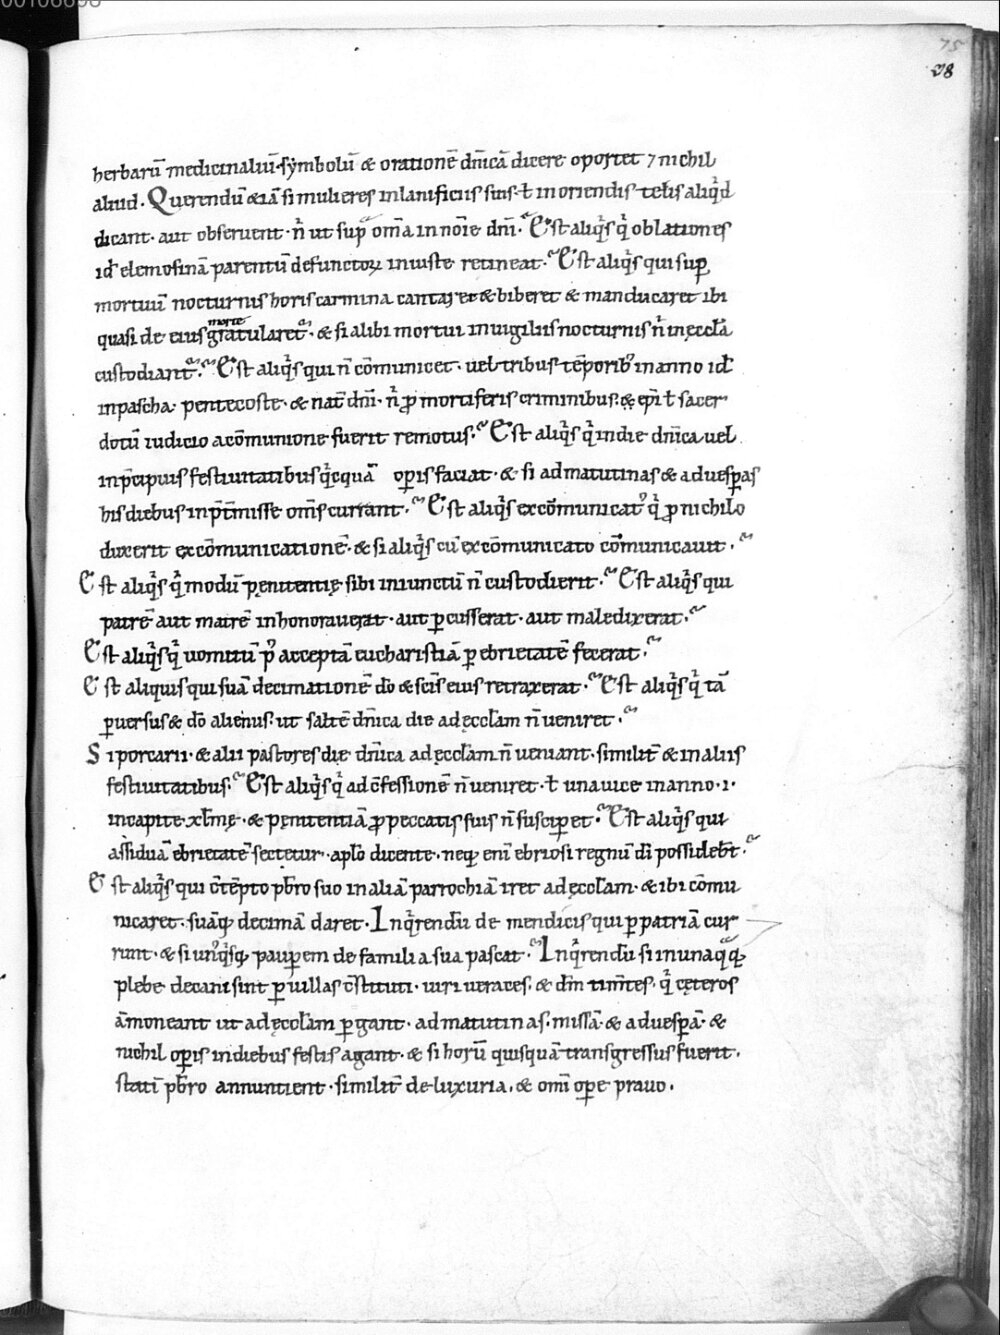 00106698
75
98
herbarū medicinaliū·sẏmbolū & orationē dn̄icā dicere oportet ⁊ nichil
aliud. Querendū & iā si mulieres in lanificiis suis· ł in oriendis telis aliqͥd
dicant· aut observent· n̄ ut supͣ om̄a in noīe dn̄i. Est aliqͥs qͥ oblationes
id ÷ elemosinā parentū defunctoꝝ iniuste retineat. Est aliqͥs qui sup
mortuū nocturnis horis carmina cantaret & biberet & manducaret ibi
quasi de eius morte gratularet̄. & si alibi mortui in uigiliis nocturnis n̄ in ęccl̄a
custodiant̄. Est aliqͥs qui n̄ cōmunicet· uel tribus tēporibꝰ in anno id ÷
in pascha· pentecoste· & nat̄ dn̄i· n̄ ꝓ mortiferis criminibus· & ep̄i ł sacer
dotū iudicio a cōmunione fuerit remotus. Est aliqͥs qͥ in die dn̄ica uel
in p̄cipuis festiuitatibus qͥcquā opis faciat· & si ad matutinas & ad uesꝑas
his diebus in p̄t̄misse om̄s currant. Est aliqͥs excōmunicatꝰ qͥ ꝓ nichilo
duxerit excōmunicationē· & si aliqͥs cū excōmunicato cōmunicauit.
Est aliqͥs qͥ modū pęnitentię sibi iniunctū n̄ custodierit. Est aliqͥs qui
patrē aut matrē inhonorauerat· aut ꝑcusserat· aut maledixerat.
Est aliqͥs qͥ uomitū pꝰ acceptā eucharistiā ꝑ ebrietatē fecerat.
Est aliquis qui suā decimationē dō & sc̄īs eius retraxerat. Est aliqͥs qͥ tā
ꝑuersus & dō alienus· ut saltē dn̄ica die ad ęccl̄am n̄ ueniret.
Si porcarii· & alii pastores die dn̄ica ad ęccl̄am n̄ ueniant· similit̄ & in aliis
festiuitatibus. Est aliqͥs qͥ ad c̄fessionē n̄ ueniret· ł una uice in anno· i·
in capite xl̄mę· & pęnitentiā ꝓ peccatis suis n̄ susciꝑet. Est aliqͥs qui
assiduā ebrietatē sectetur· ap̄lo dicente· neqꝫ eni ebriosi regnū dī possideb̄t.
Est aliqͥs qui c̄tēpto pb̄ro suo in aliā parrochiā iret ad ęccl̄am· & ibi cōmu
nicaret· suāqꝫ decimā daret. Inqͥrendū de mendicis qui ꝑ patriā cur
runt· & si unꝰqͥsqꝫ pauꝑem de familia sua pascat. Inqͥrendū si in unaqͣqꝫ
plebe decani sint ꝑ uillas c̄stituti· uiri ueraces· & dm̄ tim̄tes· qͥ cęteros
āmoneant ut ad ęccl̄am ꝑgant· ad matutinas· missā· & ad uesꝑā· &
nichil oꝑis in diebus festis agant· & si horū quisquā transgressus fuerit·
stati pb̄ro annuntient· similit̄ de luxuria· & om̄i oꝑe prauo.